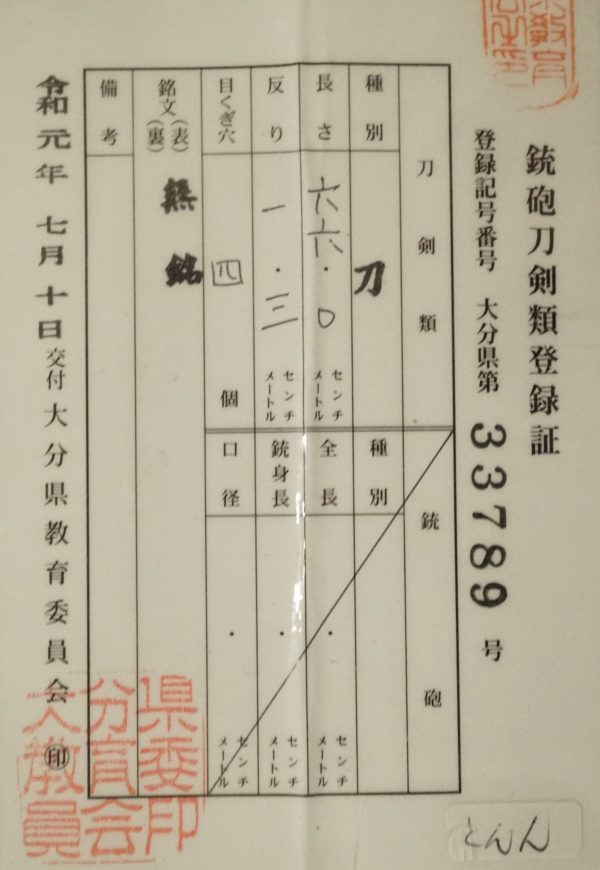 銃砲刀剣類登録証
登録記号番号 大分県第 33789 号
刀剣類
種別 刀
長さ 六六・〇 センチメートル
反り 一・三 センチメートル
目くぎ穴 四 個
銘文(表)(裏) 無銘
備考
銃砲
種別
全長 ・ センチメートル
銃身長 ・ センチメートル
口径 ・ センチメートル
令和元年 七月十日 交付 大分県教育委員会 ㊞
大分県
教育委
員会印
とんん